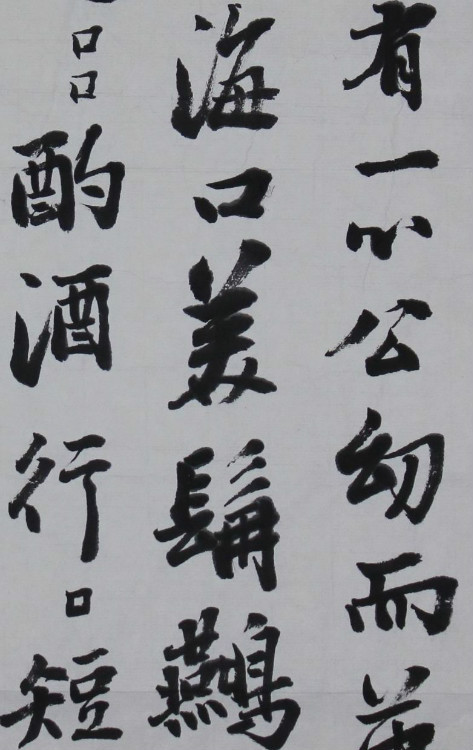 有一小公幼而
海口美髯鷰
口口酌酒行口短